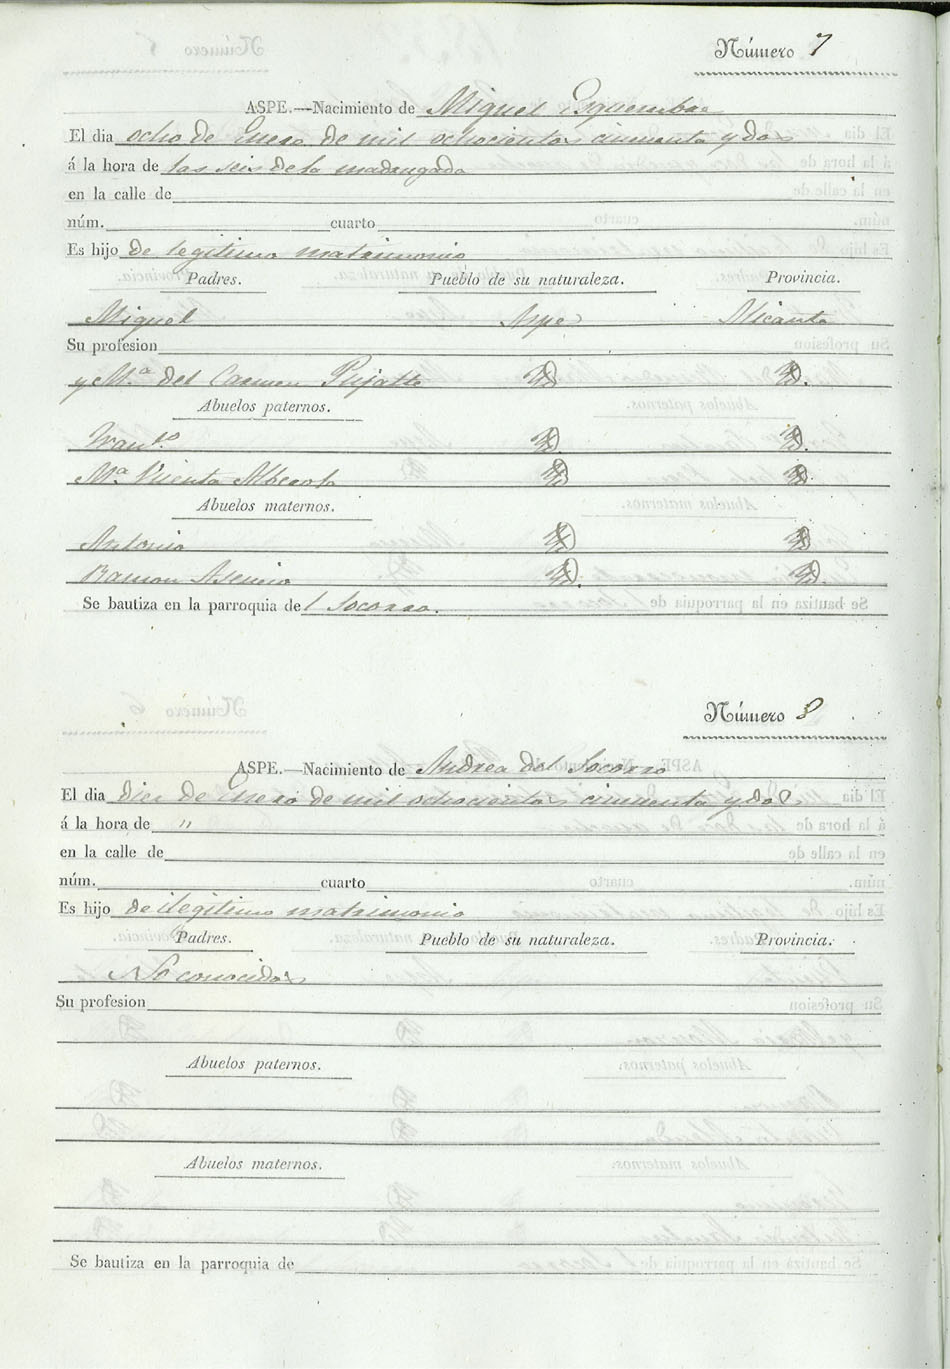 Número 7
ASPE.—Nacimiento de Miguel Esquembre
El dia ocho de Enero de mil ochocientos cincuenta y dos
á la hora de las seis de la madrugada
en la calle de
núm. cuarto
Es hijo de legitimo matrimonio
Padres. Pueblo de su naturaleza. Provincia.
Miguel Aspe Alicante
Su profesion
y M.ª del Carmen Pujalte Yd. Yd.
Abuelos paternos.
Fran.co Yd. Yd.
M.ª Vicenta Alberola Yd. Yd.
Abuelos maternos.
Antonio Yd. Yd.
Ramon Asencio Yd. Yd.
Se bautiza en la parroquia del Socorro.
Número 8
ASPE.—Nacimiento de Andrea del Socorro
El dia diez de Enero de mil ochocientos cincuenta y dos
á la hora de "
en la calle de
núm. cuarto
Es hijo de ilegitimo matrimonio
Padres. Pueblo de su naturaleza. Provincia.
No conocidos
Su profesion
Abuelos paternos.
Abuelos maternos.
Se bautiza en la parroquia de